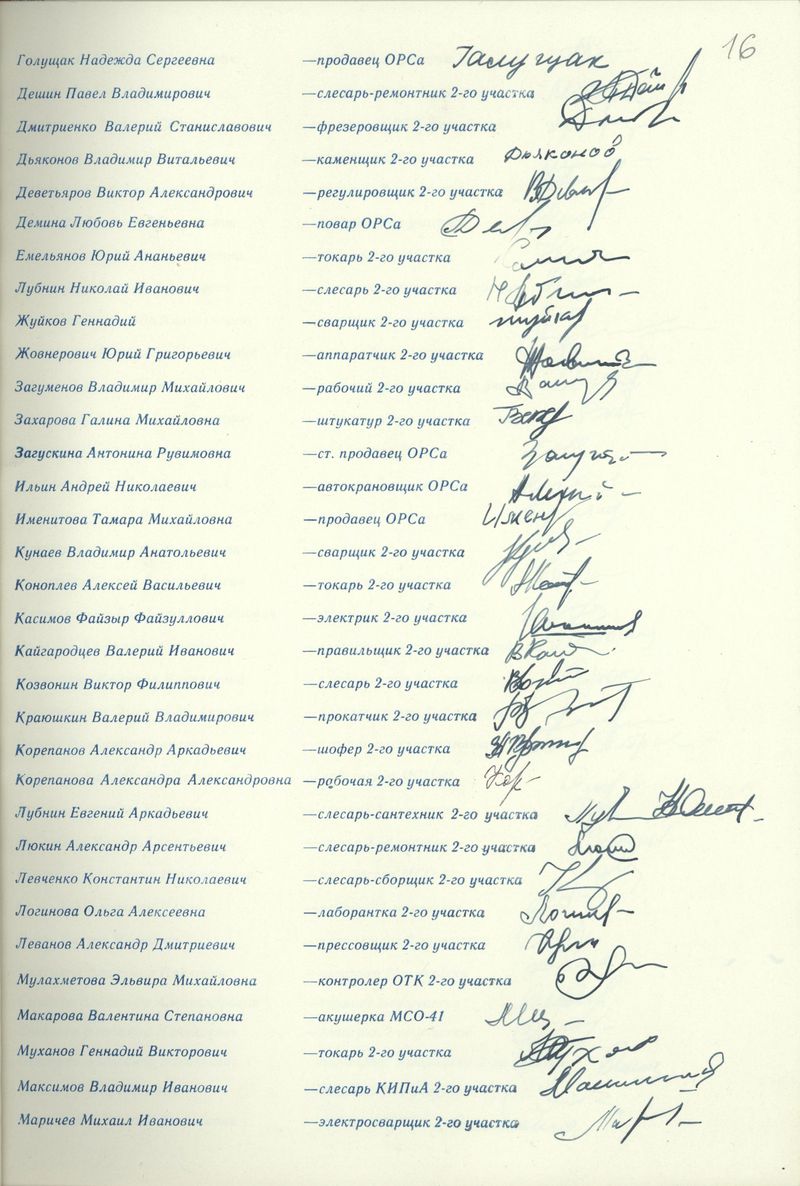 16
Голущак Надежда Сергеевна —продавец ОРСа Галущак
Дешин Павел Владимирович —слесарь-ремонтник 2-го участка
Дмитриенко Валерий Станиславович —фрезеровщик 2-го участка
Дьяконов Владимир Витальевич —каменщик 2-го участка Дьяконов
Деветьяров Виктор Александрович —регулировщик 2-го участка
Демина Любовь Евгеньевна —повар ОРСа
Емельянов Юрий Ананьевич —токарь 2-го участка
Лубнин Николай Иванович —слесарь 2-го участка
Жуйков Геннадий —сварщик 2-го участка
Жовнерович Юрий Григорьевич —аппаратчик 2-го участка
Загуменов Владимир Михайлович —рабочий 2-го участка
Захарова Галина Михайловна —штукатур 2-го участка
Загускина Антонина Рувимовна —ст. продавец ОРСа
Ильин Андрей Николаевич —автокрановщик ОРСа
Именитова Тамара Михайловна —продавец ОРСа Имен
Кунаев Владимир Анатольевич —сварщик 2-го участка
Коноплев Алексей Васильевич —токарь 2-го участка
Касимов Файзыр Файзуллович —электрик 2-го участка
Кайгародцев Валерий Иванович —правильщик 2-го участка
Козвонин Виктор Филиппович —слесарь 2-го участка
Краюшкин Валерий Владимирович —прокатчик 2-го участка
Корепанов Александр Аркадьевич —шофер 2-го участка
Корепанова Александра Александровна —рабочая 2-го участка Кор
Лубнин Евгений Аркадьевич —слесарь-сантехник 2-го участка
Люкин Александр Арсентьевич —слесарь-ремонтник 2-го участка
Левченко Константин Николаевич —слесарь-сборщик 2-го участка
Логинова Ольга Алексеевна —лаборантка 2-го участка
Леванов Александр Дмитриевич —прессовщик 2-го участка
Мулахметова Эльвира Михайловна —контролер ОТК 2-го участка
Макарова Валентина Степановна —акушерка МСО-41
Муханов Геннадий Викторович —токарь 2-го участка
Максимов Владимир Иванович —слесарь КИПиА 2-го участка
Маричев Михаил Иванович —электросварщик 2-го участка